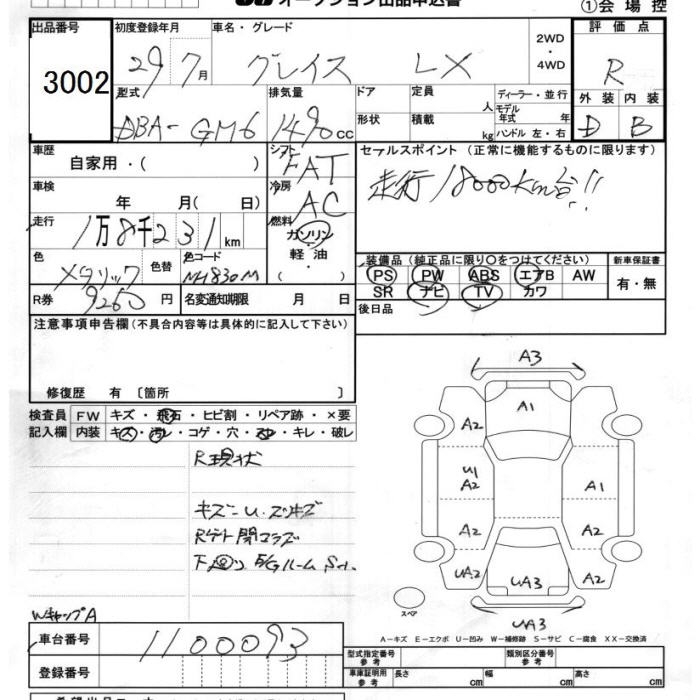 オークション出品申込書 ①会場控
出品番号 初度登録年月 車名・グレード 2WD ・ 4WD 評価点
3002 29 7月 グレイス LX R
型式 排気量 ドア 定員 人 ディーラー・並行 外装 内装
DBA-GM6 1490cc 形状 積載 kg モデル年式 年 ハンドル 左・右 D B
車歴 自家用・( ) シフト FAT セールスポイント (正常に機能するものに限ります)
車検 年 月( 日) 冷房 AC 走行18000km台!!
走行 1万8千231km 燃料 ガソリン・軽油・( )
色 メタリック 色替 色コード NH830M
装備品 (純正品に限り○をつけてください) 新車保証書
PS PW ABS エアB AW 有・無
SR ナビ TV カワ
R券 9260円 名変通知期限 月 日 後日品
注意事項申告欄(不具合内容等は具体的に記入して下さい)
修復歴 有 〔箇所 〕
検査員 FW キズ・飛石・ヒビ割・リペア跡・×要
記入欄 内装 キズ・汚レ・コゲ・穴・スレ・キレ・破レ
R現状
キズ ー U.スリキズ
Rゲート閉
E/Gルーム
WキャップA
A3
A1
A2 A2
U1
A2 A1
A2 A2
UA2 UA3 A2
スペア
UA3
A-キズ E-エクボ U-凹み W-補修跡 S-サビ C-腐食 XX-交換済
車台番号 1100093
型式指定番号 参考 類別区分番号 参考
登録番号 車庫証明用 参考 長さ cm 幅 cm 高さ cm